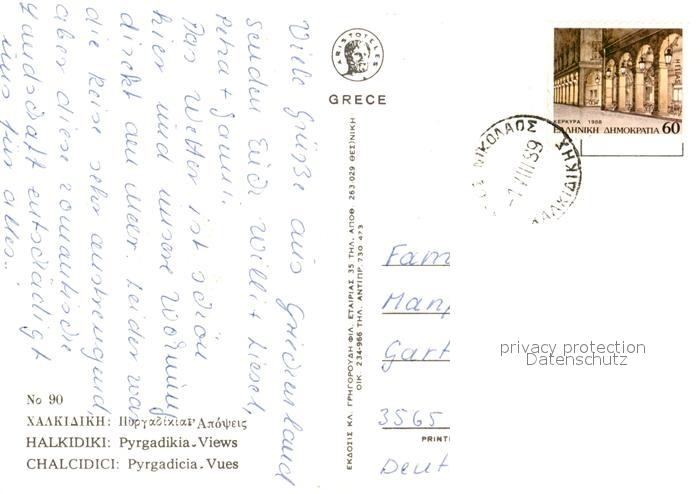 Viele Grüße aus Griechenland
senden Euch Willi + Liesel,
Petra + Hanni.
Das Wetter ist schön
hier und unsere Wohnung
direkt am Meer. Leider war
die Reise sehr anstrengend,
aber diese romantische
Landschaft entschädigt
uns für alles..
No 90
ΧΑΛΚΙΔΙΚΗ: Πυργαδίκια-Απόψεις
HALKIDIKI: Pyrgadikia-Views
CHALCIDICI: Pyrgadicia-Vues
ARISTOTELES
GREECE
ΕΚΔΟΣΙΣ ΚΛ. ΓΡΗΓΟΡΟΥΔΗ ΦΙΛ. ΕΤΑΙΡΙΑΣ 35 ΤΗΛ. ΑΠΟΘ. 263.029 ΘΕΣ)ΝΙΚΗ
ΟΙΚ. 234-966 ΤΗΛ. ΑΝΤΙΠΡ. 730.473
ΚΕΡΚΥΡΑ 1988
ΕΛΛΗΝΙΚΗ ΔΗΜΟΚΡΑΤΙΑ 60
ΝΙΚΟΛΑΟΣ
-1 VIII 89
ΧΑΛΚΙΔΙΚΗΣ
Fam
Man
Gart
3565
PRINT
Deut
privacy protection
Datenschutz